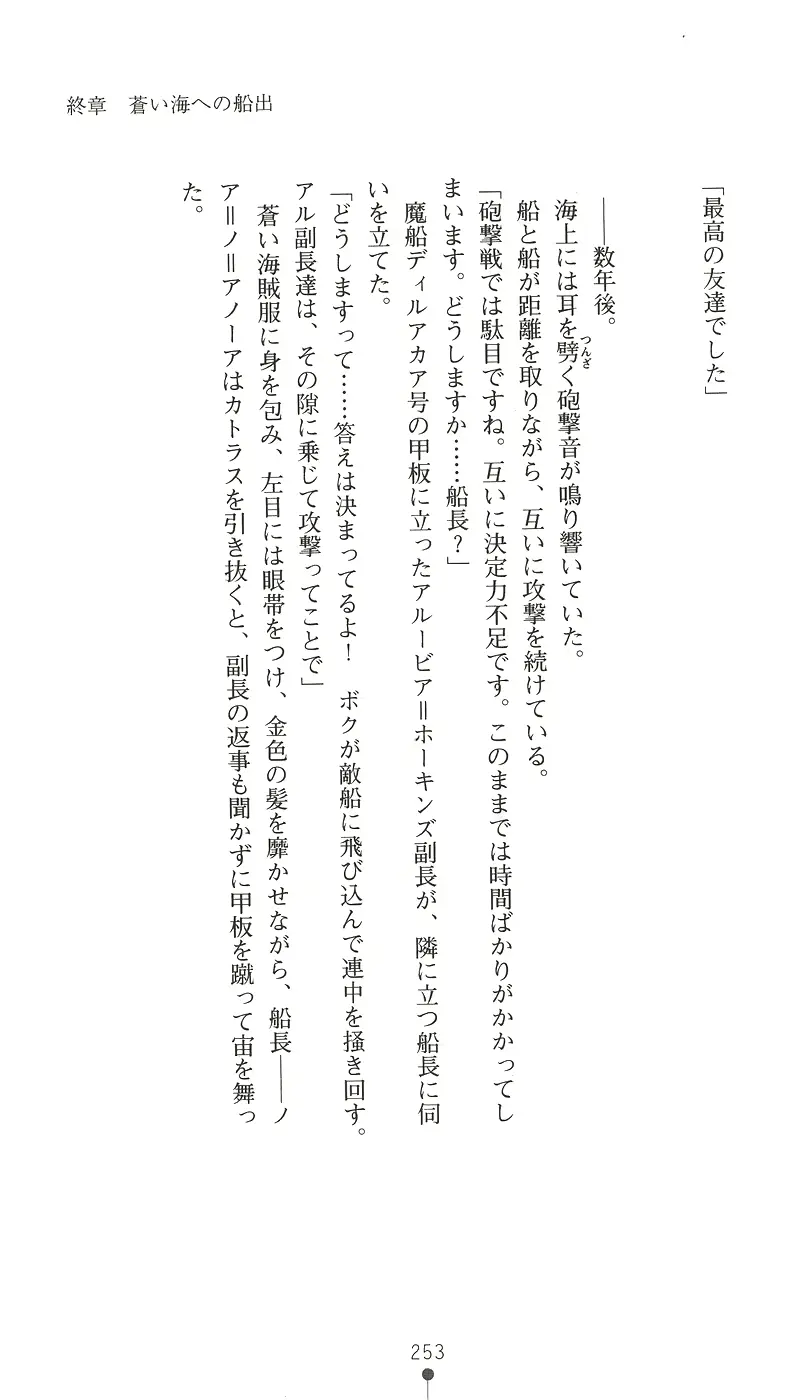 終章　蒼い海への船出
「最高の友達でした」
――数年後。
海上には耳を劈く砲撃音が鳴り響いていた。
つんざ
船と船が距離を取りながら、互いに攻撃を続けている。
「砲撃戦では駄目ですね。互いに決定力不足です。このままでは時間ばかりがかかってし
まいます。どうしますか……船長？」
魔船ディルアカア号の甲板に立ったアルービア＝ホーキンズ副長が、隣に立つ船長に伺
いを立てた。
「どうしますって……答えは決まってるよ！　ボクが敵船に飛び込んで連中を掻き回す。
アル副長達は、その隙に乗じて攻撃ってことで」
蒼い海賊服に身を包み、左目には眼帯をつけ、金色の髪を靡かせながら、船長――ノ
ア＝ノ＝アノーアはカトラスを引き抜くと、副長の返事も聞かずに甲板を蹴って宙を舞っ
た。
253